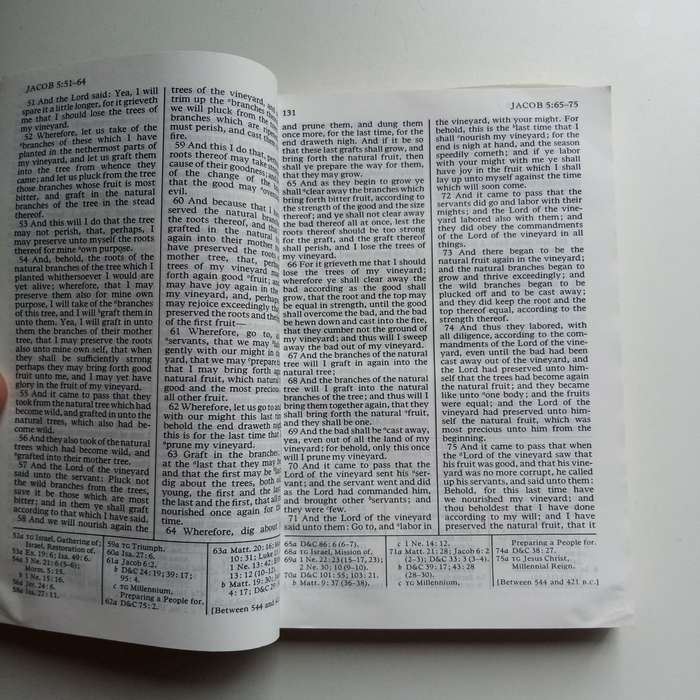 JACOB 5:51–64
51 And the Lord said: Yea, I will
spare it a little longer, for it grieveth
me that I should lose the trees of
my vineyard.
52 Wherefore, let us take of the
branches of these which I have
planted in the nethermost parts of
my vineyard, and let us graft them
into the tree from whence they
came; and let us pluck from the tree
those branches whose fruit is most
bitter, and graft in the natural
branches of the tree in the stead
thereof.
53 And this will I do that the tree
may not perish, that, perhaps, I
may preserve unto myself the roots
thereof for mine own purpose.
54 And, behold, the roots of the
natural branches of the tree which I
planted whithersoever I would are
yet alive; wherefore, that I may
preserve them also for mine own
purpose, I will take of the branches
of this tree, and I will graft them in
unto them. Yea, I will graft in unto
them the branches of their mother
tree, that I may preserve the roots
also unto mine own self, that when
they shall be sufficiently strong
perhaps they may bring forth good
fruit unto me, and I may yet have
glory in the fruit of my vineyard.
55 And it came to pass that they
took from the natural tree which had
become wild, and grafted in unto the
natural trees, which also had be-
come wild.
56 And they also took of the natural
trees which had become wild, and
grafted into their mother tree.
57 And the Lord of the vineyard
said unto the servant: Pluck not
the wild branches from the trees,
save it be those which are most
bitter; and in them ye shall graft
according to that which I have said.
58 And we will nourish again the
trees of the vineyard, and
trim up the branches
we will pluck from the
branches which are ripe
must perish, and cast
fire.
59 And this I do that, per
roots thereof may take
cause of their goodness; and
of the change of the
that the good may
evil.
60 And because that I
served the natural bran
the roots thereof, and
grafted in the natural
again into their mother
have preserved the roots
mother tree, that, per
trees of my vineyard ma
forth again good fruit; an
may have joy again in th
my vineyard, and, perhap
may rejoice exceedingly th
preserved the roots and th
of the first fruit—
61 Wherefore, go to, a
servants, that we may
gently with our might in
yard, that we may prepare
that I may bring forth ag
natural fruit, which natural
good and the most precious
all other fruit.
62 Wherefore, let us go to and
with our might this last
behold the end draweth nigh
this is for the last time that
prune my vineyard.
63 Graft in the branches;
at the last that they may be
and that the first may be
dig about the trees, both old
young, the first and the las
the last and the first, that all
nourished once again for th
time.
64 Wherefore, dig about
52a TG Israel, Gathering of;
Israel, Restoration of.
53a Ex. 19:6; Isa. 40:6.
59a TG Triumph.
60a Isa. 27:6.
61a Jacob 6:2.
b D&C 24:19; 39:17;
95:4.
c TG Millennium,
Preparing a People for.
62a D&C 75:2.
63a Matt. 20:16; M
[Between 544 and 42
131
JACOB 5:65–75
and prune them, and dung them
once more, for the last time, for the
end draweth nigh. And if it be so
that these last grafts shall grow, and
bring forth the natural fruit, then
shall ye prepare the way for them,
that they may grow.
65 And as they begin to grow ye
shall clear away the branches which
bring forth bitter fruit, according to
the strength of the good and the size
thereof; and ye shall not clear away
the bad thereof all at once, lest the
roots thereof should be too strong
for the graft, and the graft thereof
shall perish, and I lose the trees of
my vineyard.
66 For it grieveth me that I should
lose the trees of my vineyard;
wherefore ye shall clear away the
bad according as the good shall
grow, that the root and the top may
be equal in strength, until the good
shall overcome the bad, and the bad
be hewn down and cast into the fire,
that they cumber not the ground of
my vineyard; and thus will I sweep
away the bad out of my vineyard.
67 And the branches of the natural
tree will I graft in again into the
natural tree;
68 And the branches of the natural
tree will I graft into the natural
branches of the tree; and thus will I
bring them together again, that they
shall bring forth the natural fruit,
and they shall be one.
69 And the bad shall be cast away,
yea, even out of all the land of my
vineyard; for behold, only this once
will I prune my vineyard.
70 And it came to pass that the
Lord of the vineyard sent his ser-
vant; and the servant went and did
as the Lord had commanded him,
and brought other servants; and
they were few.
71 And the Lord of the vineyard
said unto them: Go to, and labor in
the vineyard, with your might. For
behold, this is the last time that I
shall nourish my vineyard; for the
end is nigh at hand, and the season
speedily cometh; and if ye labor
with your might with me ye shall
have joy in the fruit which I shall
lay up unto myself against the time
which will soon come.
72 And it came to pass that the
servants did go and labor with their
mights; and the Lord of the vine-
yard labored also with them; and
they did obey the commandments
of the Lord of the vineyard in all
things.
73 And there began to be the
natural fruit again in the vineyard;
and the natural branches began to
grow and thrive exceedingly; and
the wild branches began to be
plucked off and to be cast away;
and they did keep the root and the
top thereof equal, according to the
strength thereof.
74 And thus they labored, with
all diligence, according to the com-
mandments of the Lord of the vine-
yard, even until the bad had been
cast away out of the vineyard, and
the Lord had preserved unto him-
self that the trees had become again
the natural fruit; and they became
like unto one body; and the fruits
were equal; and the Lord of the
vineyard had preserved unto him-
self the natural fruit, which was
most precious unto him from the
beginning.
75 And it came to pass that when
the Lord of the vineyard saw that
his fruit was good, and that his vine-
yard was no more corrupt, he called
up his servants, and said unto them:
Behold, for this last time have
we nourished my vineyard; and
thou beholdest that I have done
according to my will; and I have
preserved the natural fruit, that it
65a D&C 86:6 (6–7).
68a TG Israel, Mission of.
69a 1 Ne. 22:23 (15–17, 23);
2 Ne. 30:10 (9–10).
70a D&C 101:55; 103:21.
b Matt. 9:37 (36–38).
c 1 Ne. 14:12.
71a Matt. 21:28; Jacob 6:2
(2–3); D&C 33:3 (3–4).
b D&C 39:17; 43:28
(28–30).
c TG Millennium,
Preparing a People for.
74a D&C 38:27.
75a TG Jesus Christ,
Millennial Reign.
[Between 544 and 421 B.C.]